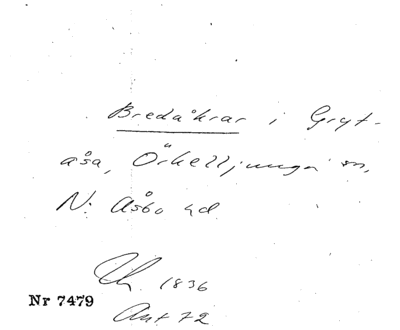 Bredåkrar i Gryt-
åsa, Örkelljunga sn,
N. Åsbo hd
1836
Nr 7479
Akt 72